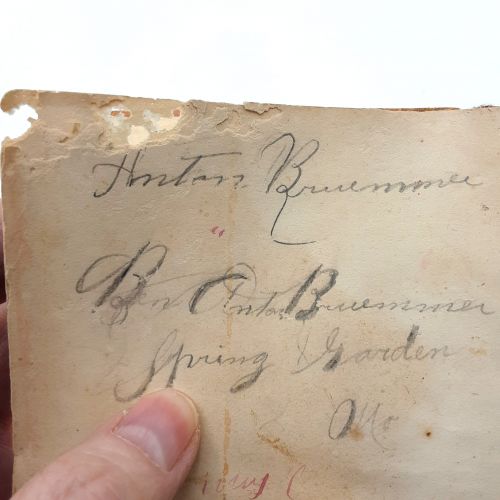 Anton Bruemmer
Ben Anton Bruemmer
Spring Garden
Mo